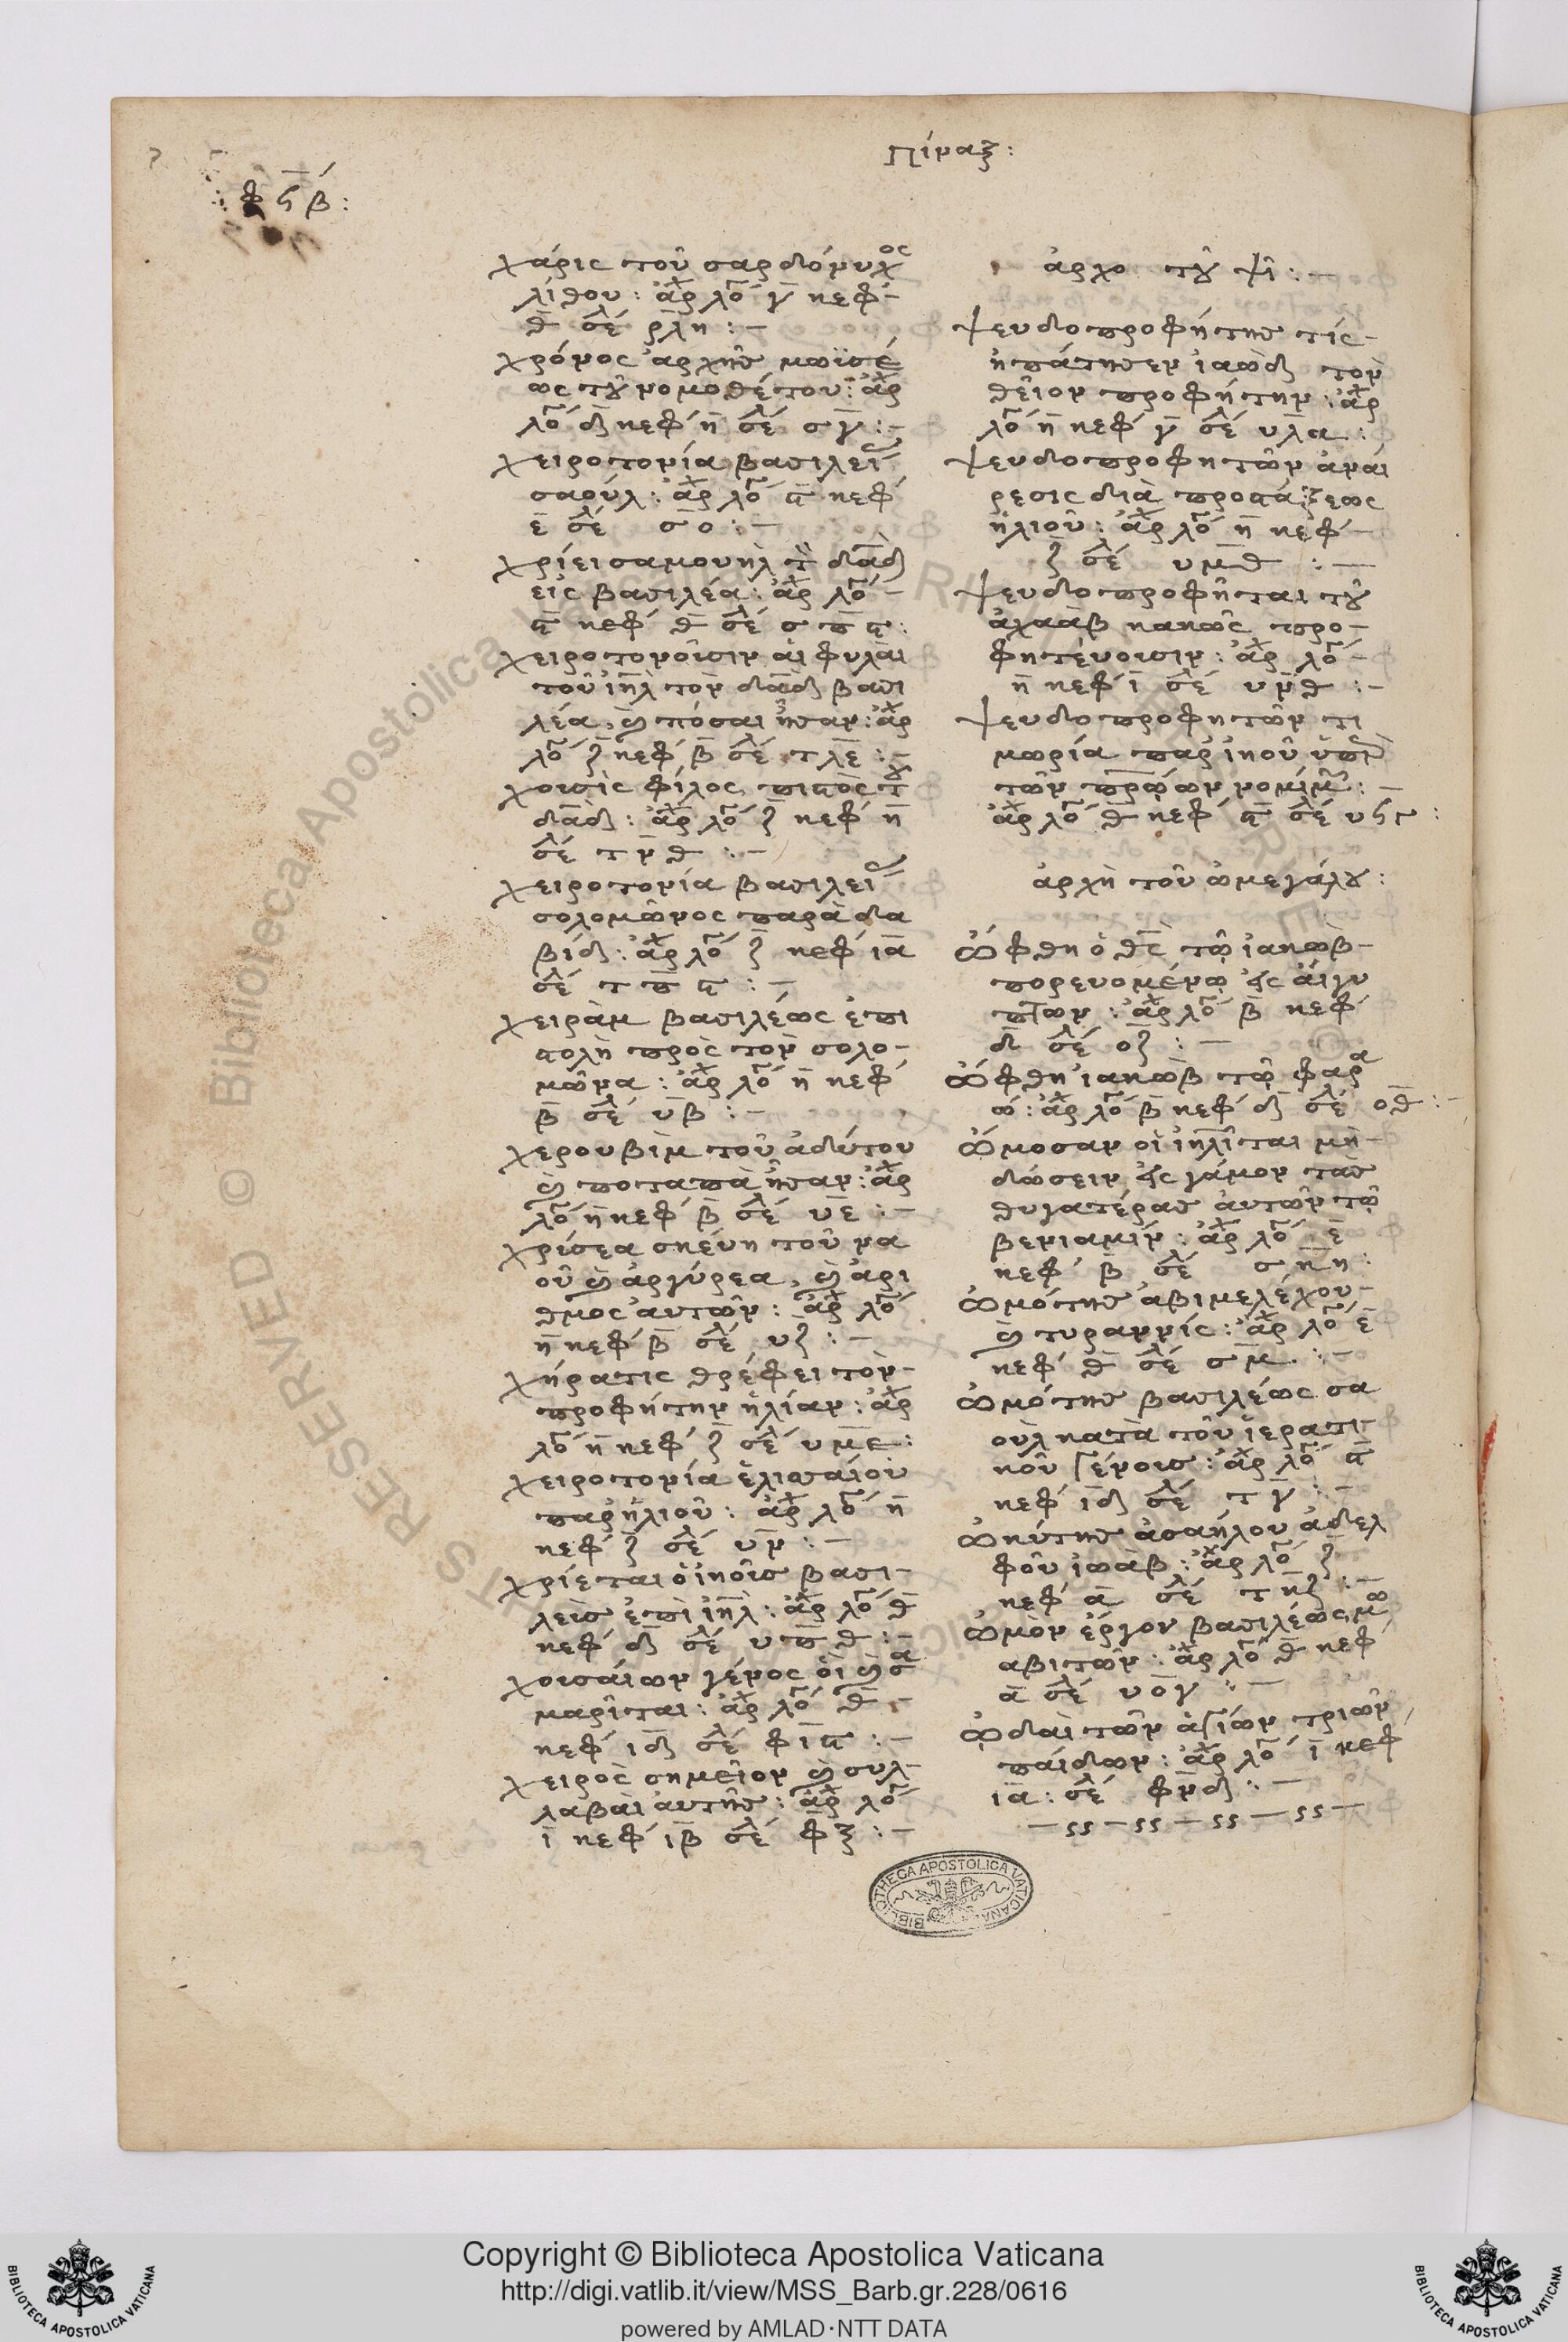 πίναξ:
φϟβ:
χάρις τοῦ σαρδόνυχος
λίθου: ἀρχ λο γ κεφ
θ σελ ρλη:
χρόνος ἀρχῆς μωϊσέ
ως τοῦ νομοθέτου: ἀρχ
λο δ κεφ η σελ σγ:
χειροτονία βασιλεί
σαούλ: ἀρχ λο ϛ κεφ
ε σελ σο:
χρίει σαμουὴλ τ δαδ
εἰς βασιλέα: ἀρχ λο
ϛ κεφ θ σελ σπϛ:
χειροτονοῦσιν αἱ φυλαὶ
τοῦ ιηλ τὸν δαδ βασι
λέα, καὶ πόσαι ἦσαν: ἀρχ
λο ζ κεφ β σελ τλε:
χουσὶς φίλος πιστὸς τοῦ
δαδ: ἀρχ λο ζ κεφ η
σελ τνθ:
χειροτονία βασιλεί
σολομῶνος παρὰ δα
βίδ: ἀρχ λο ζ κεφ ια
σελ τπϛ:
χειρὰμ βασιλέως ἐπι
στολὴ πρὸς τὸν σολο
μῶνα: ἀρχ λο η κεφ
β σελ υβ:
χερουβὶμ τοῦ ἀδύτου
καὶ ποταπὰ ἦσαν: ἀρχ
λο η κεφ β σελ υε:
χρύσεα σκεύη τοῦ να
οῦ καὶ ἀργύρεα, καὶ ἀρι
θμος αυτῶν: ἀρχ λο
η κεφ β σελ υζ:
χήρα τις θρέφει τὸν
προφήτην ηλίαν: ἀρχ
λο η κεφ ζ σελ υμε:
χειροτονία ἐλισσαίου
παρ ηλιοῦ: ἀρχ λο η
κεφ ζ σελ υν:
χρίεται ὁ ἰηοῦς βασι
λεὺς ἐπὶ ιηλ: ἀρχ λο θ
κεφ δ σελ υπθ:
χουσαίων γένος οἱ καὶ σα
μαρῖται: ἀρχ λο θ
κεφ ιδ σελ φιϛ:
χειρὸς σημεῖον καὶ συλ
λαβαὶ αυτῆς: ἀρχ λο
ι κεφ ιβ σελ φξ:
ἀρχο τοῦ ψῖ:
ψευδοπροφήτης τίς
ἠπάτησεν ἰαὼδ τον
θεῖον προφήτην: ἀρχ
λο η κεφ γ σελ υλα:
ψευδοπροφητῶν ἀναί
ρεσις διὰ προστάξεως
ἠλιοῦ: ἀρχ λο η κεφ
ζ σελ υμθ:
ψευδοπροφῆται τοῦ
ἀχαὰβ κακῶς προ
φητεύουσιν: ἀρχ λο
η κεφ ι σελ υνθ:
ψευδοπροφητῶν τι
μωρία παρ ἰηοῦ ὑπὲρ
τῶν πρώων νομίμ:
ἀρχ λο θ κεφ ϛ σελ υϟϛ:
ἀρχὴ τοῦ ὠμεγάλου:
ὤφθη ὁ θς τῶ ἰακὼβ
πορευομένω εἰς αἴγυ
πτων: ἀρχ λο β κεφ
δ σελ οζ:
ὤφθη ἰακὼβ τῶ φαρα
ώ: ἀρχ λο β κεφ δ σελ οθ:
ὤμοσαν οἱ ιηλῖται μὴ
δώσειν εἰς γάμον τὰς
θυγατέρας ἀυτῶν τῶ
βενιαμίν: ἀρχ λο ε
κεφ β σελ σκη:
ὠμότης ἀβιμελέχου
καὶ τυραννίς: ἀρχ λο ε
κεφ θ σελ σμ:
ὠμότης βασιλέως σα
οὺλ κατὰ τοῦ ἱερατι
κοῦ γένους: ἀρχ λο ϛ
κεφ ιδ σελ τγ:
ὠκύτης ἀσαήλου ἀδελ
φοῦ ἰωάβ: ἀρχ λο ζ
κεφ α σελ τκζ:
ὠμὸν ἔργον βασιλέως μω
αβιτῶν: ἀρχ λο θ κεφ
α σελ υογ:
ὠδαὶ τῶν ἁγίων τριῶν
παίδων: ἀρχ λο ι κεφ
ια: σελ φνδ:
BIBLIOTHECA APOSTOLICA VATICANA
Copyright © Biblioteca Apostolica Vaticana
http://digi.vatlib.it/view/MSS_Barb.gr.228/0616
powered by AMLAD·NTT DATA